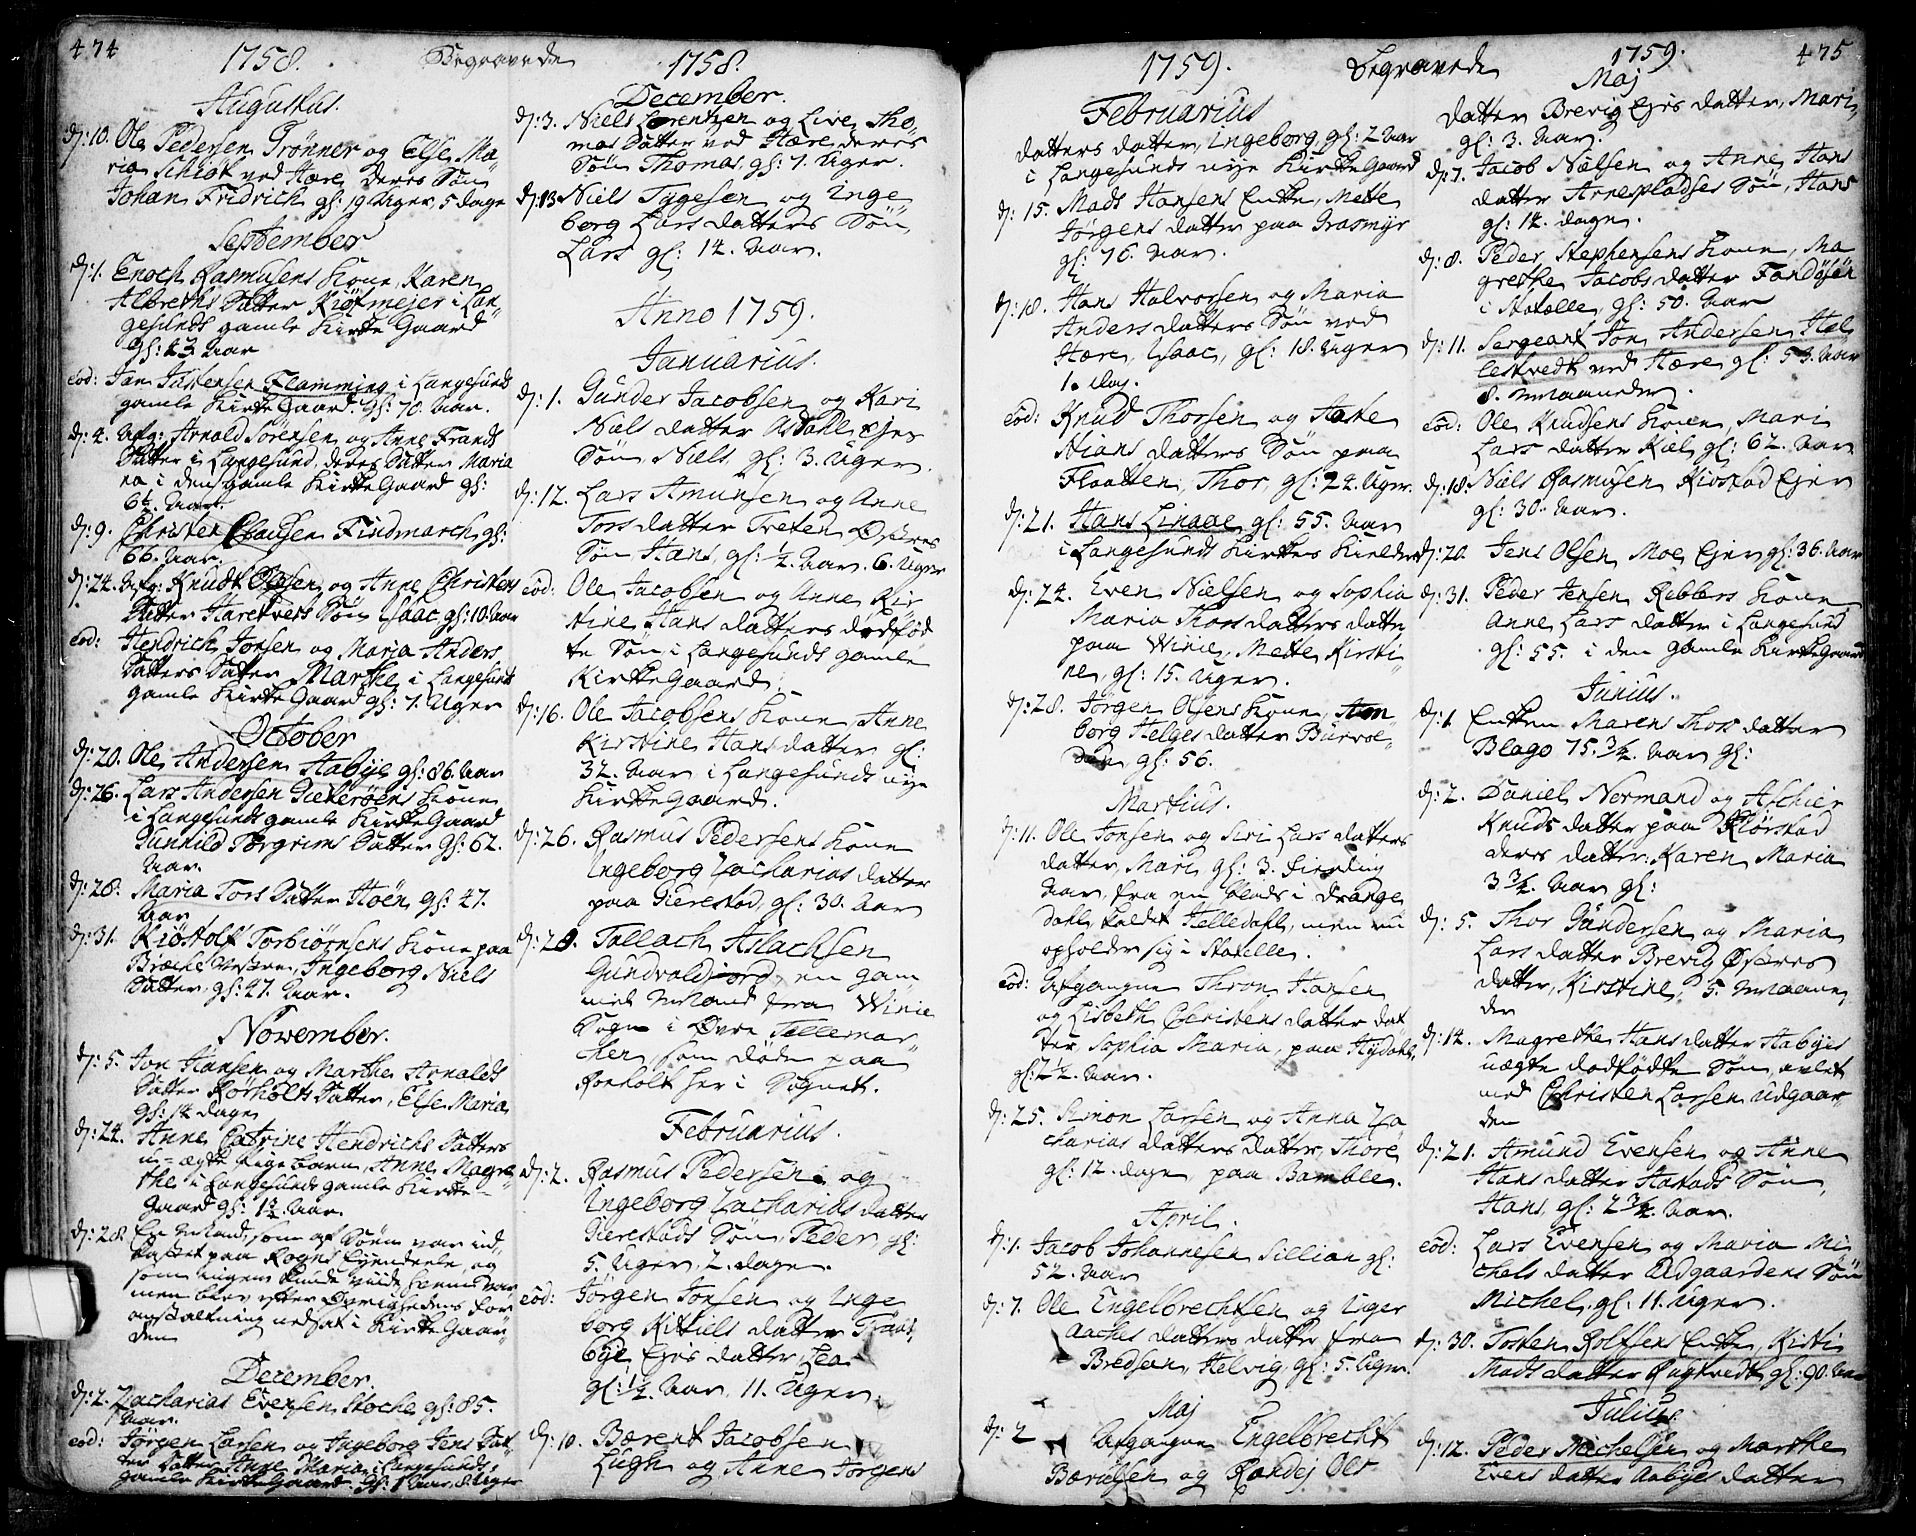 474
1758. Begravede 1758.
Augustus.
d: 10. Ole Pedersen Trönner og Else Ma-
ria Schiöt ved Stære deres Sön
Johan Fridrich gl: 19 Uger, 5 dage
September
d: 1. Enoch Rasmusens Kone, Karen
Albreths Datter Kiöfmejer i Lan-
gesunds gamle Kirke Gaard
gl: 43 Aar
eod: Jan Justensen Flamming i Langesunds
gamle Kirke Gaard. gl: 70. Aar.
d: 4. Afg: Arnold Sörensen og Anne Frands
Datter i Langesund, deres Datter Maria
na i den gamle Kirke Gaard gl:
6½ Aar.
d: 9. Christen Clausen Findmarch gl:
66. Aar.
d: 24. Afg: Knudt Olssen og Anne Christens
Datter Haretvets Sön Isaac gl: 10. Aar
eod: Hendrich Jonsen og Maria Anders
Datters Datter Marthe i Langesunds
gamle Kirke Gaard gl: 7. Uger
October
d: 20. Ole Andersen Aabye gl: 86. Aar
d: 26. Lars Andersen Gieteröens Kone
i Langesunds gamle Kirke Gaard
Gunnild Torgrims Datter gl: 62.
Aar.
d: 28. Maria Tors Datter Höen gl: 47.
Aar
d: 31. Kiöstolf Torbiörnsens Kone paa
Bræche Vestre, Ingeborg Niels
Datter, gl: 47. Aar.
November.
d: 5. Jon Hansen og Marthe Arnolds
Datter Rörholts Datter, Else Maria
gl: 14 dage
d: 24. Anne Catrine Hendrichs Datters
u-ægte Pige barn, Anne Magre-
the i Langesunds gamle Kirke-
Gaard gl: 1½. Aar.
d: 28. En Mand, som af Söen var ind-
kastet paa Rogns Eyendeele, og
som ingen kunde viide hvem var
men blev efter Øvrighedens for-
anstaltning nedsat i Kirke Gaar-
den
December.
d: 2. Zacharias Evensen Stoche gl: 85.
Aar.
eod: Jörgen Larsen og Ingeborg Jens Dat-
ters Datter Anne Maria i Langesunds
gamle Kirke Gaard. gl: 1 Aar, 8 Uger
December.
d: 3. Niels Lorentzen og Live Tho-
mas Datter ved Stære deres
Sön Thomas, gl: 7. Uger.
d: 13 Niels Tygesen og Inge
borg Lars datters Sön,
Lars gl: 14. Aar.
Anno 1759.
Januarius.
d: 1. Gunder Jacobsen og Kari
Niels datter Asdahl Ejer
Sön, Niels, gl: 3. Uger.
d: 12. Lars Amunsen og Anne
Tors datter Treten Østres
Sön Hans, gl: ½. Aar. 6. Uger
eod: Ole Jacobsen og Anne Kir-
stine Hans datters dødföd
te Sön i Langesunds gamle
Kirke Gaard.
d: 16. Ole Jacobsens Kone Anne
Kirstine Hans datter gl:
32. Aar i Langesunds nye
Kirke Gaard.
d: 26. Rasmus Pedersens Kone
Ingeborg Zacharias datter
paa Gierestad, gl: 30. Aar
d: 28. Tallach Aslachsen
Gundvaldjord, en gam
mel Mand fra Winie
Sogn i Øvre Tellemar-
chen, som døde paa
Ronholt her i Sognet.
Februarius.
d: 2. Rasmus Pedersen og
Ingeborg Zacharias datter
Gierestads Sön, Peder, gl:
5. Uger, 2. dage.
eod: Jörgen Jonsen og Inge
borg Kittils datter Traat
bye Ejers datter, Lea
gl: ½. Aar, 11. Uger.
d: 10. Bærent Jacobsen
Lugn og Anne Jörgens
475
1759. Begravede 1759.
Februarius
datters datter, Ingeborg, gl: 2 Aar
i Langesunds nye Kirke Gaard
d: 15. Mads Hansens Enke, Mette
Jörgens datter paa Grasmyr
gl: 76. Aar.
d: 18. Hans Halvorsen og Maria
Anders datters Sön ved
Stære, Isaac, gl: 18. Uger
1. dag.
eod: Knud Thorsen og Aase
Stians datters Sön paa
Flaatten, Thor, gl: 24. Uger.
d: 21. Hans Linaae gl: 55. Aar
i Langesunds Kirkes Kielder
d: 24. Even Nielsen og Sophia
Maria Thors datters datter
paa Winie, Mette Kirsti-
ne, gl: 15. Uger.
d: 28. Jörgen Olsens Kone, Am
borg Helges datter Burvol-
den gl: 56.
Martius.
d: 11. Ole Jonsen og Siri Lars datters
datter, Mari, gl: 3. fierding
Aar, fra en plads i Drange
dahl, kaldet Helledahl, men nu
opholder sig i Statelle.
eod: Afgangne Thron Hansen
og Lisbeth Christens datter dat
ter, Sophia Maria, paa Hydahl,
gl: 2½. Aar.
d: 25. Simon Larsen og Anna Za
charias datters datter, Thore
gl: 12. dage, paa Bamble.
April.
d: 1. Jacob Johannesen Sillian gl:
52. Aar
d: 7. Ole Engelbrechtsen og Inger
Aaches datters datter fra
Bredsen, Helvig, gl: 5. Uger.
Maj
d: 2 Afgangne Engelbrecht
Bærulsen og Randej Ols
Maj
datter Brevig Ejers datter, Mari,
gl: 3. Aar.
d: 7. Jacob Nielsen og Anne Hans
datter Arnepladses Sön, Hans
gl: 14. dage.
d: 8. Peder Stephensens Kone, Ma
grethe Jacobs datter Fondösen
i Statelle, gl: 50. Aar
d: 11. Sergeant Jon Andersen Hal
lestvedt ved Stære gl: 53. Aar
8. Maaneder.
eod: Ole Knudsens Kone, Mari
Lars datter Kiel gl: 62. Aar
d: 18. Niels Rasmusen Kiostad Ejer
gl: 30. Aar.
d: 20. Jens Olsen Moe Ejer gl: 36. Aar
d: 31. Peder Jensen Ribbers Kone
Anne Lars datter i Langesund
gl: 55. i den gamle Kirke Gaard
Junius.
d: 1. Enken Maren Thors datter
Blago 75. ¾. Aar gl:
d: 2. Daniel Normand og Aschier
Knuds datter paa Kiørstad
deres datter Karen Maria
3 ¾. Aar gl:
d: 5. Thor Gundersen og Maria
Lars datter Brevig Østres
datter, Kirstine, 5. Maane-
der
d: 14. Magrethe Hans datter Aabyes
uægte dødfødte Sön, avlet
med Christen Larsen Udgaar-
den
d: 21. Amund Evensen og Anne
Hans datter Hastads Sön,
Hans, gl: 2 ¾. Aar.
eod: Lars Evensen og Maria Mi
chels datter Udgaardens Sön
Michel, gl: 11. Uger.
d: 30. Torsten Rolfsens Enke, Kirsti
Mads datter Rugtvedt gl: 90. Aar
Julius
d: 12. Peder Michelsen og Marthe
Evens datter Aabyes datter